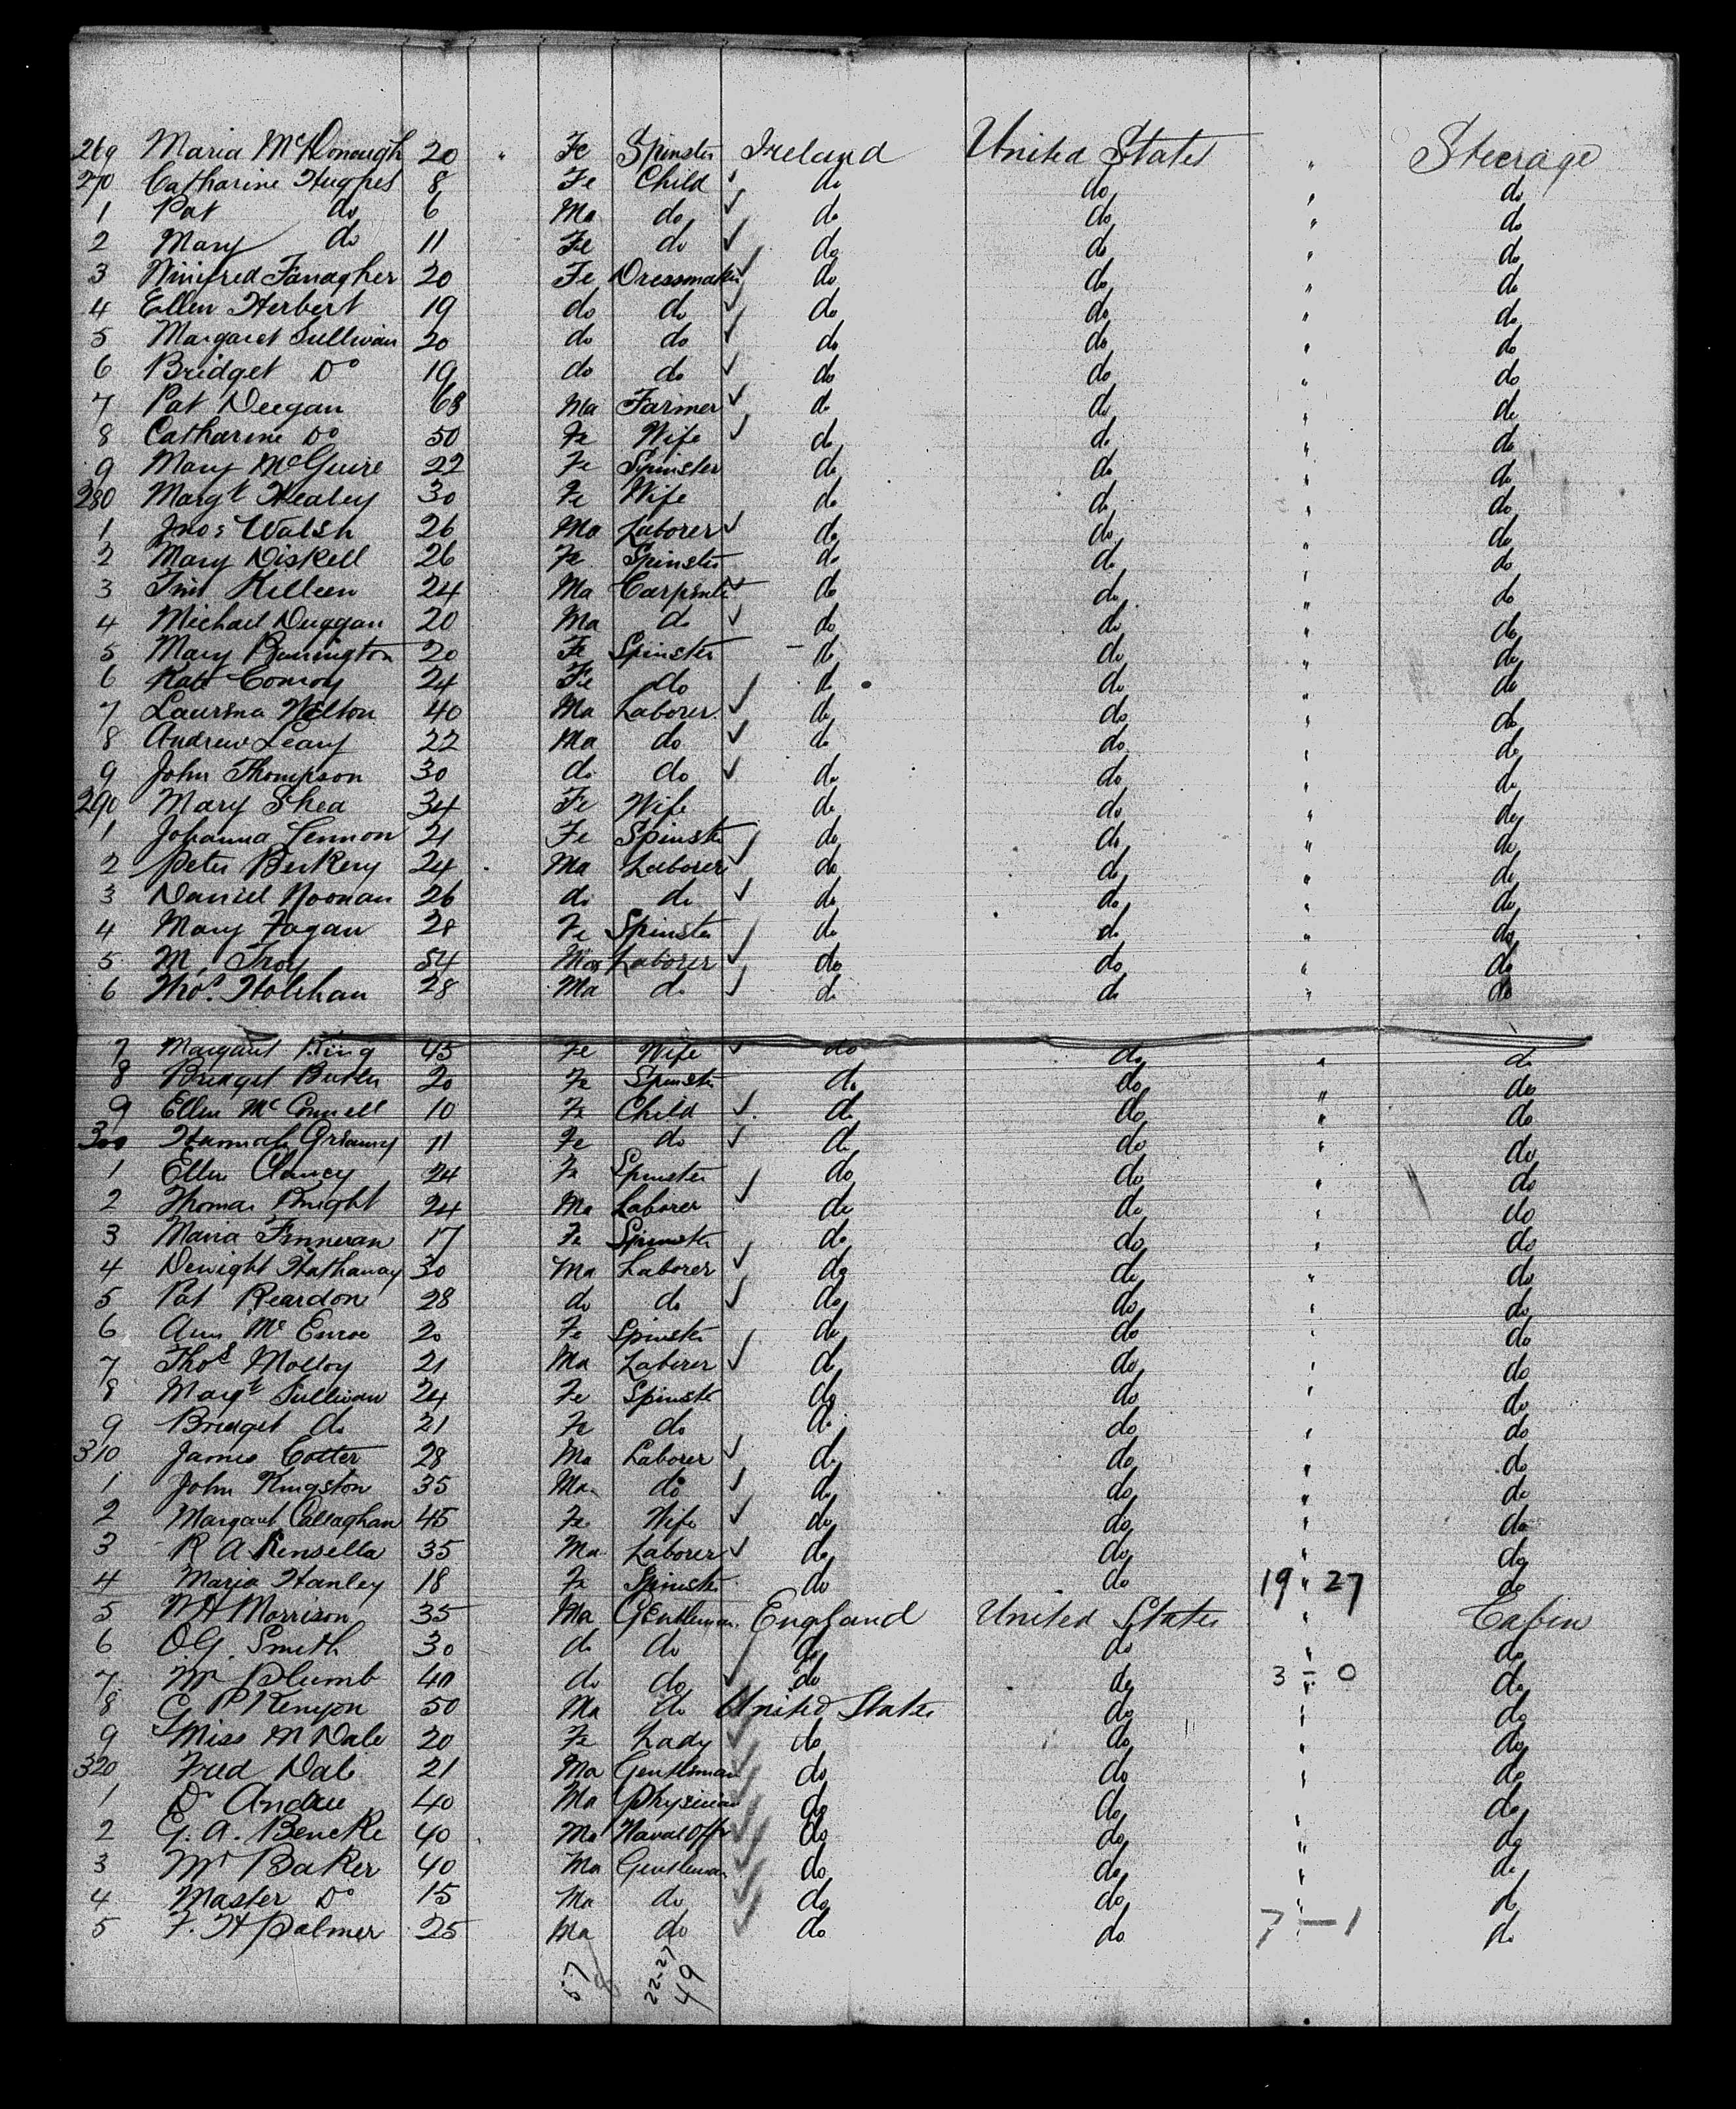 269 Maria McDonough 20 " Fe Spinster Ireland United States " Steerage
270 Catharine Hughes 8 Fe Child do do " do
1 Pat do 6 Ma do do do " do
2 Mary do 11 Fe do do do " do
3 Winifred Fanagher 20 Fe Dressmaker do do " do
4 Ellen Herbert 19 do do do do " do
5 Margaret Sullivan 20 do do do do " do
6 Bridget Do 19 do do do do " do
7 Pat Deegan 68 Ma Farmer do do " do
8 Catharine Do 50 Fe Wife do do " do
9 Mary McGuire 22 Fe Spinster do do " do
280 Margt Healey 30 Fe Wife do do " do
1 Jnos Walsh 26 Ma Laborer do do " do
2 Mary Diskell 26 Fe Spinster do do " do
3 Tim Killeen 24 Ma Carpenter do do " do
4 Michael Duggan 20 Ma do do do " do
5 Mary Bonnington 20 Fe Spinster do do " do
6 Kate Conroy 24 Fe do do do " do
7 Laurena Welton 40 Ma Laborer do do " do
8 Andrew Leary 22 Ma do do do " do
9 John Thompson 30 do do do do " do
290 Mary Shea 34 Fe Wife do do " do
1 Johanna Lennon 21 Fe Spinster do do " do
2 Peter Berkery 24 Ma Laborer do do " do
3 Daniel Noonan 26 do do do do " do
4 Mary Fagan 28 Fe Spinster do do " do
5 M. Troy 54 Ma Laborer do do " do
6 Thos. Holihan 28 Ma do do do " do
7 Margaret King 45 Fe Wife do do " do
8 Bridget Butler 20 Fe Spinster do do " do
9 Ellen McConnell 10 Fe Child do do " do
300 Hannah 11 Fe do do do " do
1 Ellen Clancy 24 Fe Spinster do do " do
2 Thomas Bright 24 Ma Laborer do do " do
3 Maria Finneran 17 Fe Spinster do do " do
4 Dewight Hathaway 30 Ma Laborer do do " do
5 Pat Reardon 28 do do do do " do
6 Ann McEnroe 20 Fe Spinster do do " do
7 Thos Molloy 21 Ma Laborer do do " do
8 Margt Sullivan 24 Fe Spinster do do " do
9 Bridget do 21 Fe do do do " do
310 James Cotter 28 Ma Laborer do do " do
1 John Kingston 35 Ma do do do " do
2 Margaret Callaghan 45 Fe Wife do do " do
3 R A Kensella 35 Ma Laborer do do " do
4 Maria Hanley 18 Fe Spinster do do 19 " 27 do
5 W H Morrison 35 Ma Gentleman England United States " Cabin
6 O.G. Smith 30 do do do do " do
7 Mr Plumb 40 do do do do 3 - 0 do
8 G P Kenyon 50 Ma do United States do " do
9 Miss M Dale 20 Fe Lady do do " do
320 Fred Dale 21 Ma Gentleman do do " do
1 Dr Andrew 40 Ma Physician do do " do
2 G. A. Bencke 40 Ma Naval Offr do do " do
3 Mr Baker 40 Ma Gentleman do do " do
4 Master Do 15 Ma do do do " do
5 F. H Palmer 25 Ma do do do 7 - 1 do
57 22-27
49